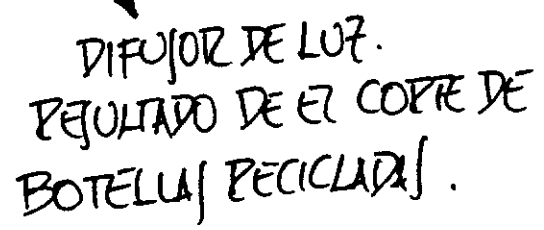 DIFUSOR DE LUZ.
RESULTADO DE EL CORTE DE
BOTELLAS RECICLADAS.